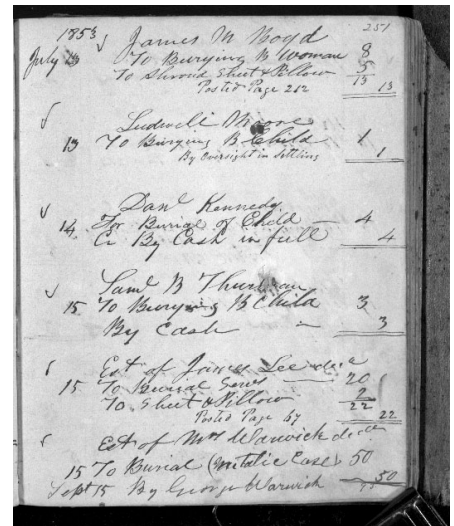 251
1853 James M Boyd
July 13 To Burying B Woman 8
To Shroud Sheet & Pillow 5
13 13
Posted Page 212
Ludwell Moore
13 To Burying B Child 1
By Oversight in Settling 1
Danl Kennedy
14 For Burial of Child — 4
Cr By Cash in full 4
Saml B Thurman
15 To Burying B Child 3
By Cash — 3
Est of James Lee decd
15 To Burial Serv 20
To Sheet & Pillow 2
22 22
Posted Page 67
Est of Mrs Warwick decd
15 To Burial (Mitalic Case) 50
Sept 15 By George Warwick 50